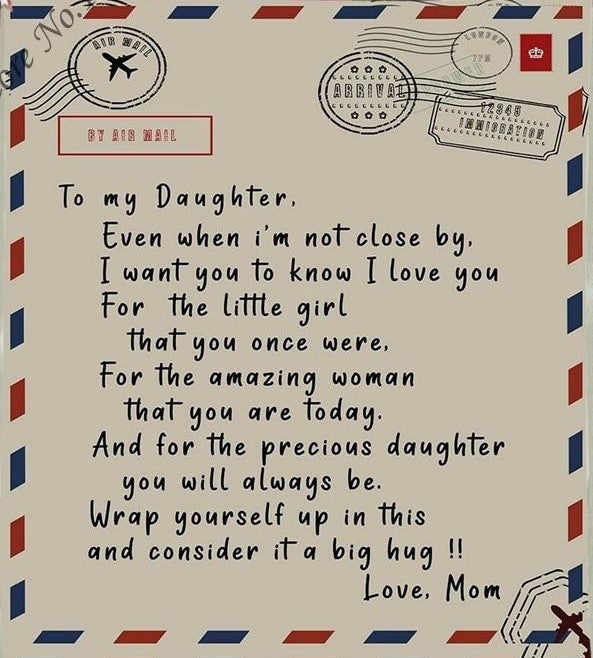 ore No.
AIR MAIL
LONDON
7PM
ARRIVAL
12345
IMMIGRATION
BY AIR MAIL
To my Daughter,
Even when i'm not close by,
I want you to know I love you
For the little girl
that you once were,
For the amazing woman
that you are today.
And for the precious daughter
you will always be.
Wrap yourself up in this
and consider it a big hug !!
Love, Mom